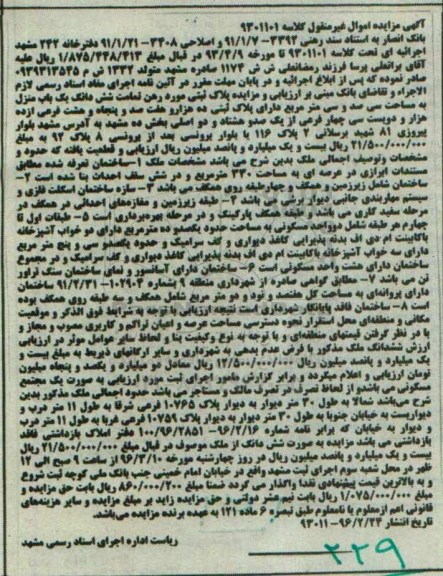 آگهی مزایده اموال غیرمنقول کلاسه ۹۳۰۱۱۰۱
بانک انصار به استناد سند رهنی ۳۳۹۲- ۹۱/۱/۷ و اصلاحی ۳۴۰۸ - ۹۱/۱/۲۱ دفترخانه ۲۴۲ مشهد
اجرائیه ای تحت کلاسه ۹۳۰۱۱۰۱ تا مورخه ۹۳/۴/۹ در قبال مبلغ ۱/۸۷۵/۴۴۸/۴۱۳ ریال علیه
آقای براتعلی پرسا فرزند رمضانعلی ش ش ۱۱۷۴ صادره مشهد متولد ۱۳۳۲ ش م ۰۹۳۹۳۱۳۵۴۵
صادر نموده که پس از ابلاغ اجرائیه و در پایان مهلت مقرر در آئین نامه اجرای مفاد اسناد رسمی لازم
الاجراء و تقاضای بانک مبنی بر ارزیابی و مزایده پلاک ثبتی مورد رهن تمامت شش دانگ یک باب منزل
به مساحت سی صد و سی متر مربع دارای پلاک ثبتی ده هزارو هفتصد و پنجاه و هشت فرعی ازده
هزار و دویست سی چهار فرعی از یک صدو هشتاد و دو اصلی بخش ده مشهد به آدرس مشهد بلوار
پیروزی ۸۱ شهید برسلانی ۲ پلاک ۱۱۶ یا بلوار پرونسی بعد از پرونسی ۸ پلاک ۹۲ به مبلغ
۲۱/۵۰۰/۰۰۰/۰۰۰ ریال بیست و یک میلیارد و پانصد میلیون ریال ارزیابی و قطعیت یافته که حدود و
مشخصات وتوصیف اجمالی ملک بدین شرح می باشد مشخصات ملک ۱-ساختمان تعرفه شده مطابق
مستندات ابرازی در عرصه ای به مساحت ۳۳۰ مترمربع و در شش سقف احداث بنا شده است ۲-
ساختمان شامل زیرزمین و همکف و چهارطبقه روی همکف می باشد ۳- سازه ساختمان اسکلت فلزی و
سیستم مهاربندی جانبی دیوار برشی می باشد ۴- طبقه زیرزمین و مغازه‌های احداثی در همکف در
مرحله سفید کاری می باشد و طبقه همکف پارکینگ و در مرحله بهره‌برداری است ۵- طبقات اول تا
چهارم هر طبقه شامل دوواحد مسکونی به مساحت حدود یکصدو ده مترمربع دارای دو خواب آشپزخانه
باکابینت ام دی اف بدنه پذیرایی کاغذ دیواری و کف سرامیک و حدود یکصدو سی و پنج متر مربع
دارای سه خواب آشپزخانه باکابینت ام دی اف بدنه پذیرایی کاغذ دیواری و کف سرامیک و در مجموع
ساختمان دارای هشت واحد مسکونی است ۶- ساختمان دارای آسانسور و نمای ساختمان سنگ تراور
تن می باشد ۷- مطابق گواهی صادره از شهرداری منطقه ۹ بشماره ۱۰۲۹۰۳- ۹۱/۲/۳۱ ساختمان
دارای پروانه‌ای به مساحت کل هفتصد و نود و دو متر مربع شامل همکف و سه طبقه روی همکف بوده
است ۸- ساختمان فاقد پایانکار شهرداری است نتیجه ارزیابی با توجه به شرایط فوق الذکر و موقعیت
مکانی و منطقه‌ای محل استقرار نحوه دسترسی مساحت عرصه و اعیان تراکم و کاربری مصوب و مجاز و
با در نظر گرفتن قیمتهای منطقه‌ای و با توجه به نوع وکیفیت بنا و لحاظ سایر عوامل موثر در ارزیابی
ارزش ششدانگ ملک مذکور با فرض عدم بدهی به شهرداری و سایر ارگانهای ذیربط به مبلغ بیست و
یک میلیارد و پانصد میلیون ریال ریال معادل دو میلیارد و یکصد و پنجاه میلیون
تومان ارزیابی و اعلام میگردد و برابر گزارش مامور اجرای ثبت مورد ارزیابی به صورت یک مجتمع
مسکونی می باشدو از لحاظ تصرف در تصرف مالک و مستاجر می باشد حدود اجمالی ملک مذکور بدین
شرح می‌باشد شمالا به طول ۳۰ متر دیوار به دیوار پلاک ۱۰۷۶۵ فرعی شرقا به طول ۱۱ متر درب و
دیواریست به خیابان جنوبا به طول ۳۰ متر دیوار به دیوار پلاک ۱۰۷۵۹ فرعی غربا به طول ۱۱ متر درب
و دیوار به خیابان که برابر نامه شماره ۹۶/۲/۱۶ - ۱۰۰/۹۶/۲۸۵۱ دفتر املاک بازداشتی فاقد
بازداشتی می باشد مزایده به صورت شش دانگ از ملک موصوف در قبال مبلغ ۲۱/۵۰۰/۰۰۰/۰۰۰ ریال
بیست و یک میلیارد و پانصد میلیون ریال در روز چهارشنبه مورخه از ساعت ۹ صبح الی ۱۲
ظهر در محل شعبه سوم اجرای ثبت مشهد واقع در خیابان امام خمینی جنب بانک ملی کوچه ثبت شروع
و به بالاترین قیمت پیشنهادی نقدا واگذار می گردد ضمنا مبلغ ریال بابت حق مزایده و
مبلغ ۱/۰۷۵/۰۰۰/۰۰۰ ریال بابت نیم‌عشر دولتی و حق مزایده زاید بر مبلغ مزایده و سایر هزینه‌های
قانونی اهم ازمعلوم یا نامعلوم طبق تبصره ۶ ماده ۱۲۱ به عهده برنده مزایده می‌باشد.
تاریخ انتشار ۹۶/۲/۲۴ - ۹۳۰۱۱
ریاست اداره اجرای اسناد رسمی مشهد
۲۲۹